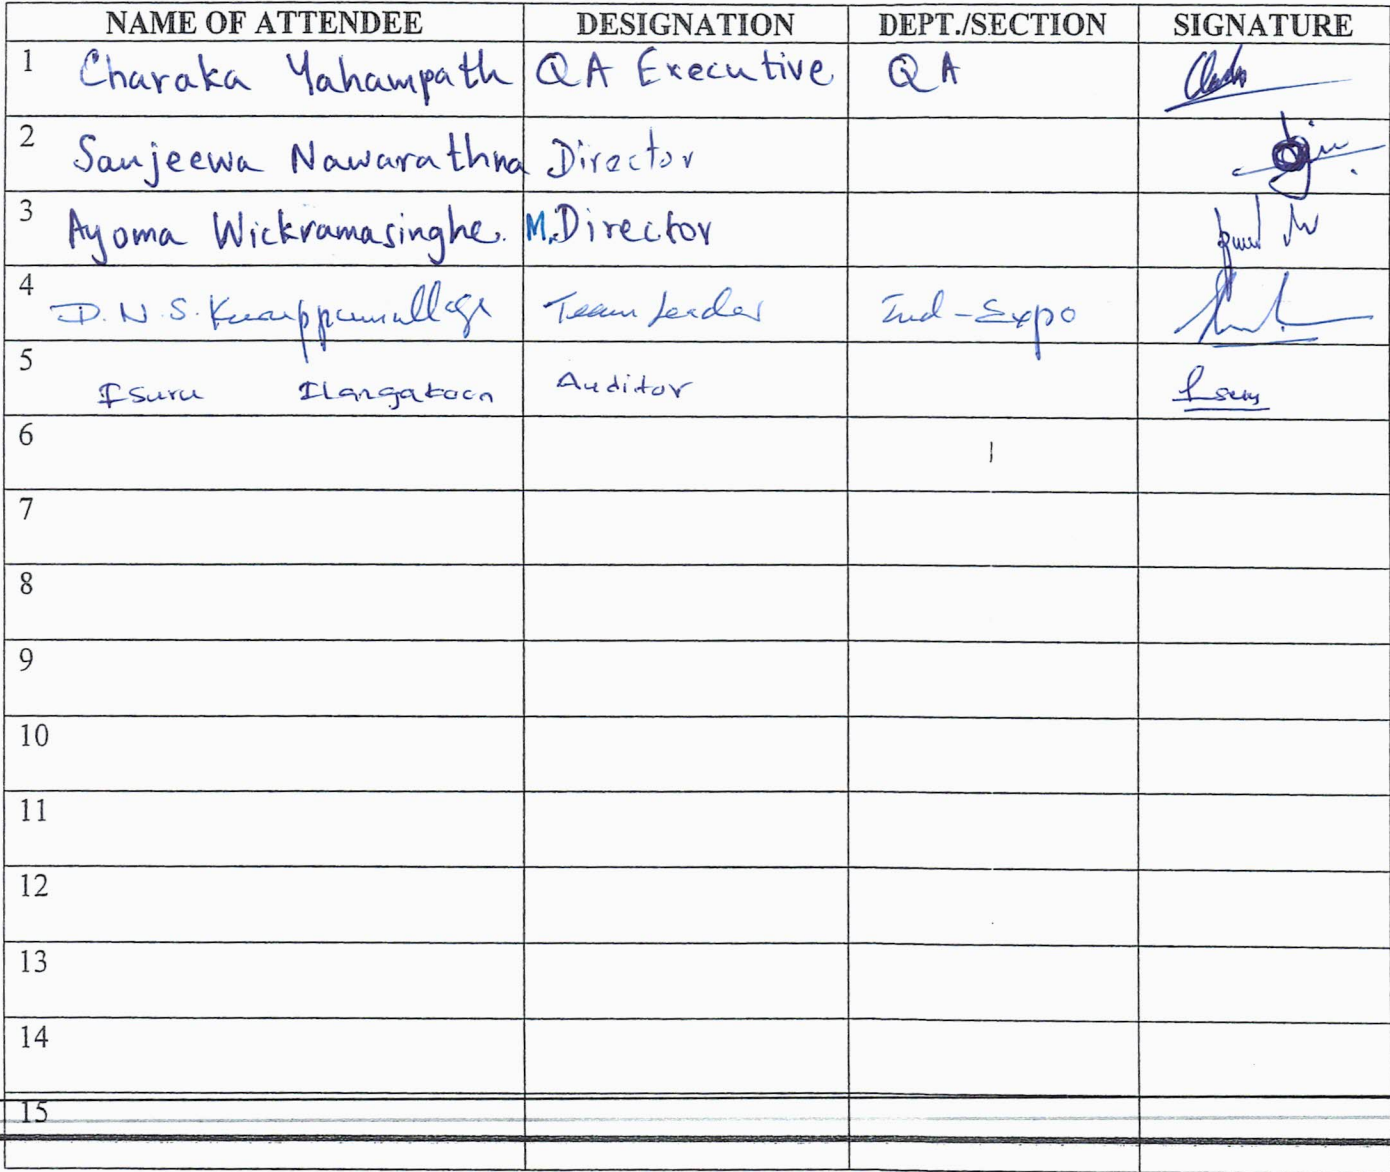 NAME OF ATTENDEE DESIGNATION DEPT./SECTION SIGNATURE
1 Charaka Yahampath QA Executive QA
2 Sanjeewa Nawarathna Director
3 Ayoma Wickramasinghe. M.Director
4 D.N.S. Team Leader Ind-Expo
5 Isuru Ilangakoon Auditor
6
7
8
9
10
11
12
13
14
15